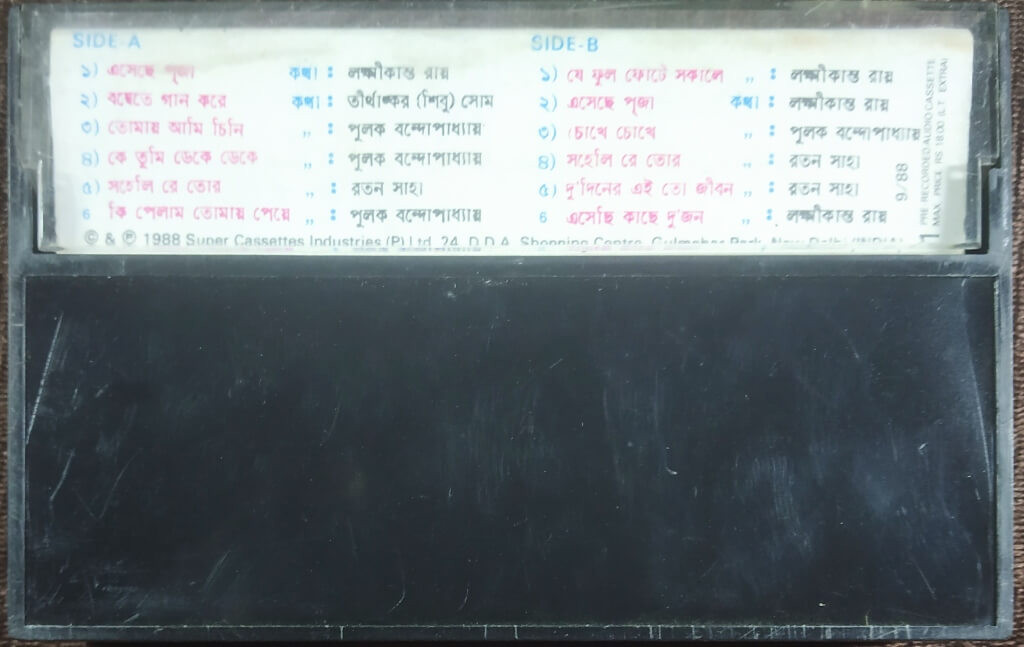 SIDE-A
১) এসেছে পূজা কথা : লক্ষ্মীকান্ত রায়
২) বম্বেতে গান করে কথা : তীর্থঙ্কর (শিবু) সোম
৩) তোমায় আমি চিনি ,, : পুলক বন্দোপাধ্যায়
৪) কে তুমি ডেকে ডেকে ,, : পুলক বন্দোপাধ্যায়
৫) সহেলি রে তোর ,, : রতন সাহা
6 কি পেলাম তোমায় পেয়ে ,, : পুলক বন্দোপাধ্যায়
SIDE-B
১) যে ফুল ফোটে সকালে ,, : লক্ষ্মীকান্ত রায়
২) এসেছে পূজা কথা : লক্ষ্মীকান্ত রায়
৩) চোখে চোখে ,, : পুলক বন্দোপাধ্যায়
৪) সহেলি রে তোর ,, : রতন সাহা
৫) দু'দিনের এই তো জীবন ,, : রতন সাহা
6 এসেছি কাছে দু'জন ,, : লক্ষ্মীকান্ত রায়
© & ℗ 1988 Super Cassettes Industries (P) Ltd. 24, D.D.A. Shopping Centre, Gulmohar Park, New Delhi (INDIA)
9/88
PRE RECORDED AUDIO CASSETTE
MAX. PRICE RS 18.00 (L.T. EXTRA)